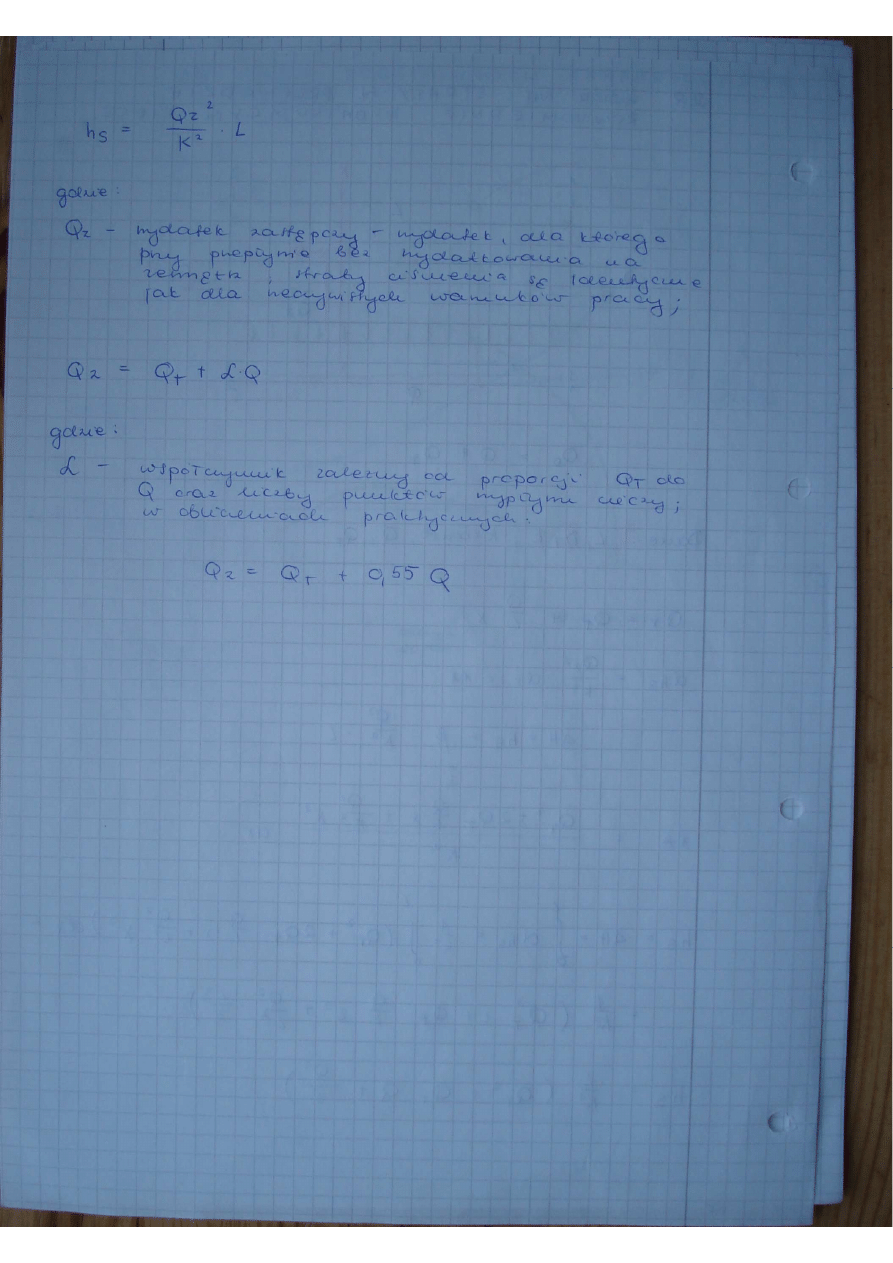 hs = Qz² / K² · L
gdzie:
Qz – wydatek zastępczy – wydatek, dla którego
przy przepływie bez wydatkowania na
zewnątrz, straty ciśnienia są identyczne
jak dla rzeczywistych warunków pracy;
Qz = QT + α·Q
gdzie:
α – współczynnik zależny od proporcji QT do
Q oraz liczby punktów wypływu cieczy;
w obliczeniach praktycznych:
Qz = QT + 0,55 Q